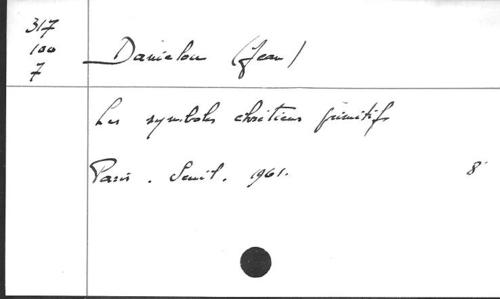 317
100
7
Danielou (Jean)
Les symboles chrétiens primitifs
Paris. Seuil. 1961. 8°